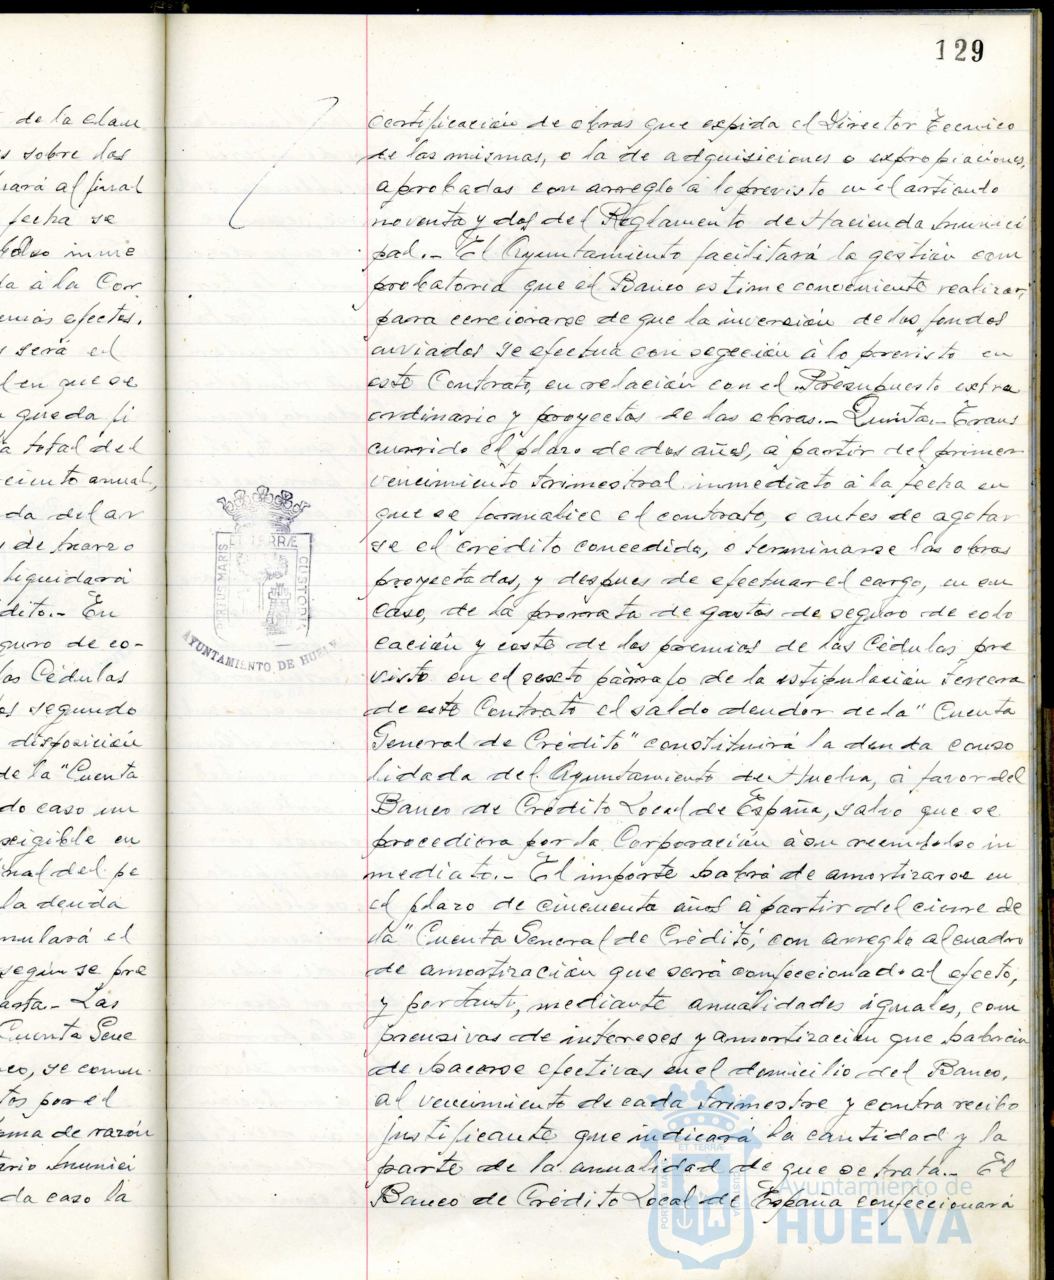 129
de la clau
s sobre las
uará al final
fecha se
bolso inme
da á la Cor
emás efectos.
s será el
l en que se
queda fi
a total del
reciento anual,
da del ar
s de marzo
liquidará
dito.- En
guro de co-
las Cédulas
os segundo
disposición
de la "Cuenta
do caso un
exigible en
inal del pe
la deuda
mulará el
según se pre
arta.- Las
Cuenta Gene
nco, se comu
tos por el
oma de razón
ario Munici
da caso la
certificación de obras que expida el Director Tecnico
de las mismas, o la de adquisiciones o expropiaciones,
aprobadas con arreglo á lo previsto en el artículo
noventa y dos del Reglamento de Hacienda Munici
pal.- El Ayuntamiento facilitará la gestión com
probatoria que el Banco estime conveniente realizar,
para cerciorarse de que la inversión de los fondos
enviados se efectua con sugeción á lo previsto en
este Contrato, en relación con el Presupuesto extra
ordinario y proyectos de las obras.- Quinta.- Trans
currido el plazo de dos años, á partir del primer
vencimiento trimestral inmediato á la fecha en
que se formalice el contrato, o antes de agotar
se el crédito concedido, o terminarse las obras
proyectadas, y despues de efectuar el cargo, en su
caso, de la prorrata de gastos de seguro de colo
cación y coste de los premios de las Cédulas pre
visto en el sexto párrafo de la estipulación tercera
de este Contrato el saldo deudor de la "Cuenta
General de Crédito" constituirá la deuda conso
lidada del Ayuntamiento de Huelva, á favor del
Banco de Crédito Local de España, salvo que se
procediera por la Corporación á su reembolso in
mediato.- El importe habrá de amortizarse en
el plazo de cincuenta años á partir del cierre de
la "Cuenta General de Crédito", con arreglo al cuadro
de amortización que será confeccionado al efecto,
y por tanto, mediante anualidades iguales, com
prensivas de intereses y amortización que habrán
de hacerse efectivas en el domicilio del Banco,
al vencimiento de cada trimestre y contra recibo
justificante que indicará la cantidad y la
parte de la anualidad de que se trata.- El
Banco de Crédito Local de España confeccionará
PORTUS MARIS ET TERRÆ CUSTODIA
AYUNTAMIENTO DE HUELV
Ayuntamiento de
HUELVA